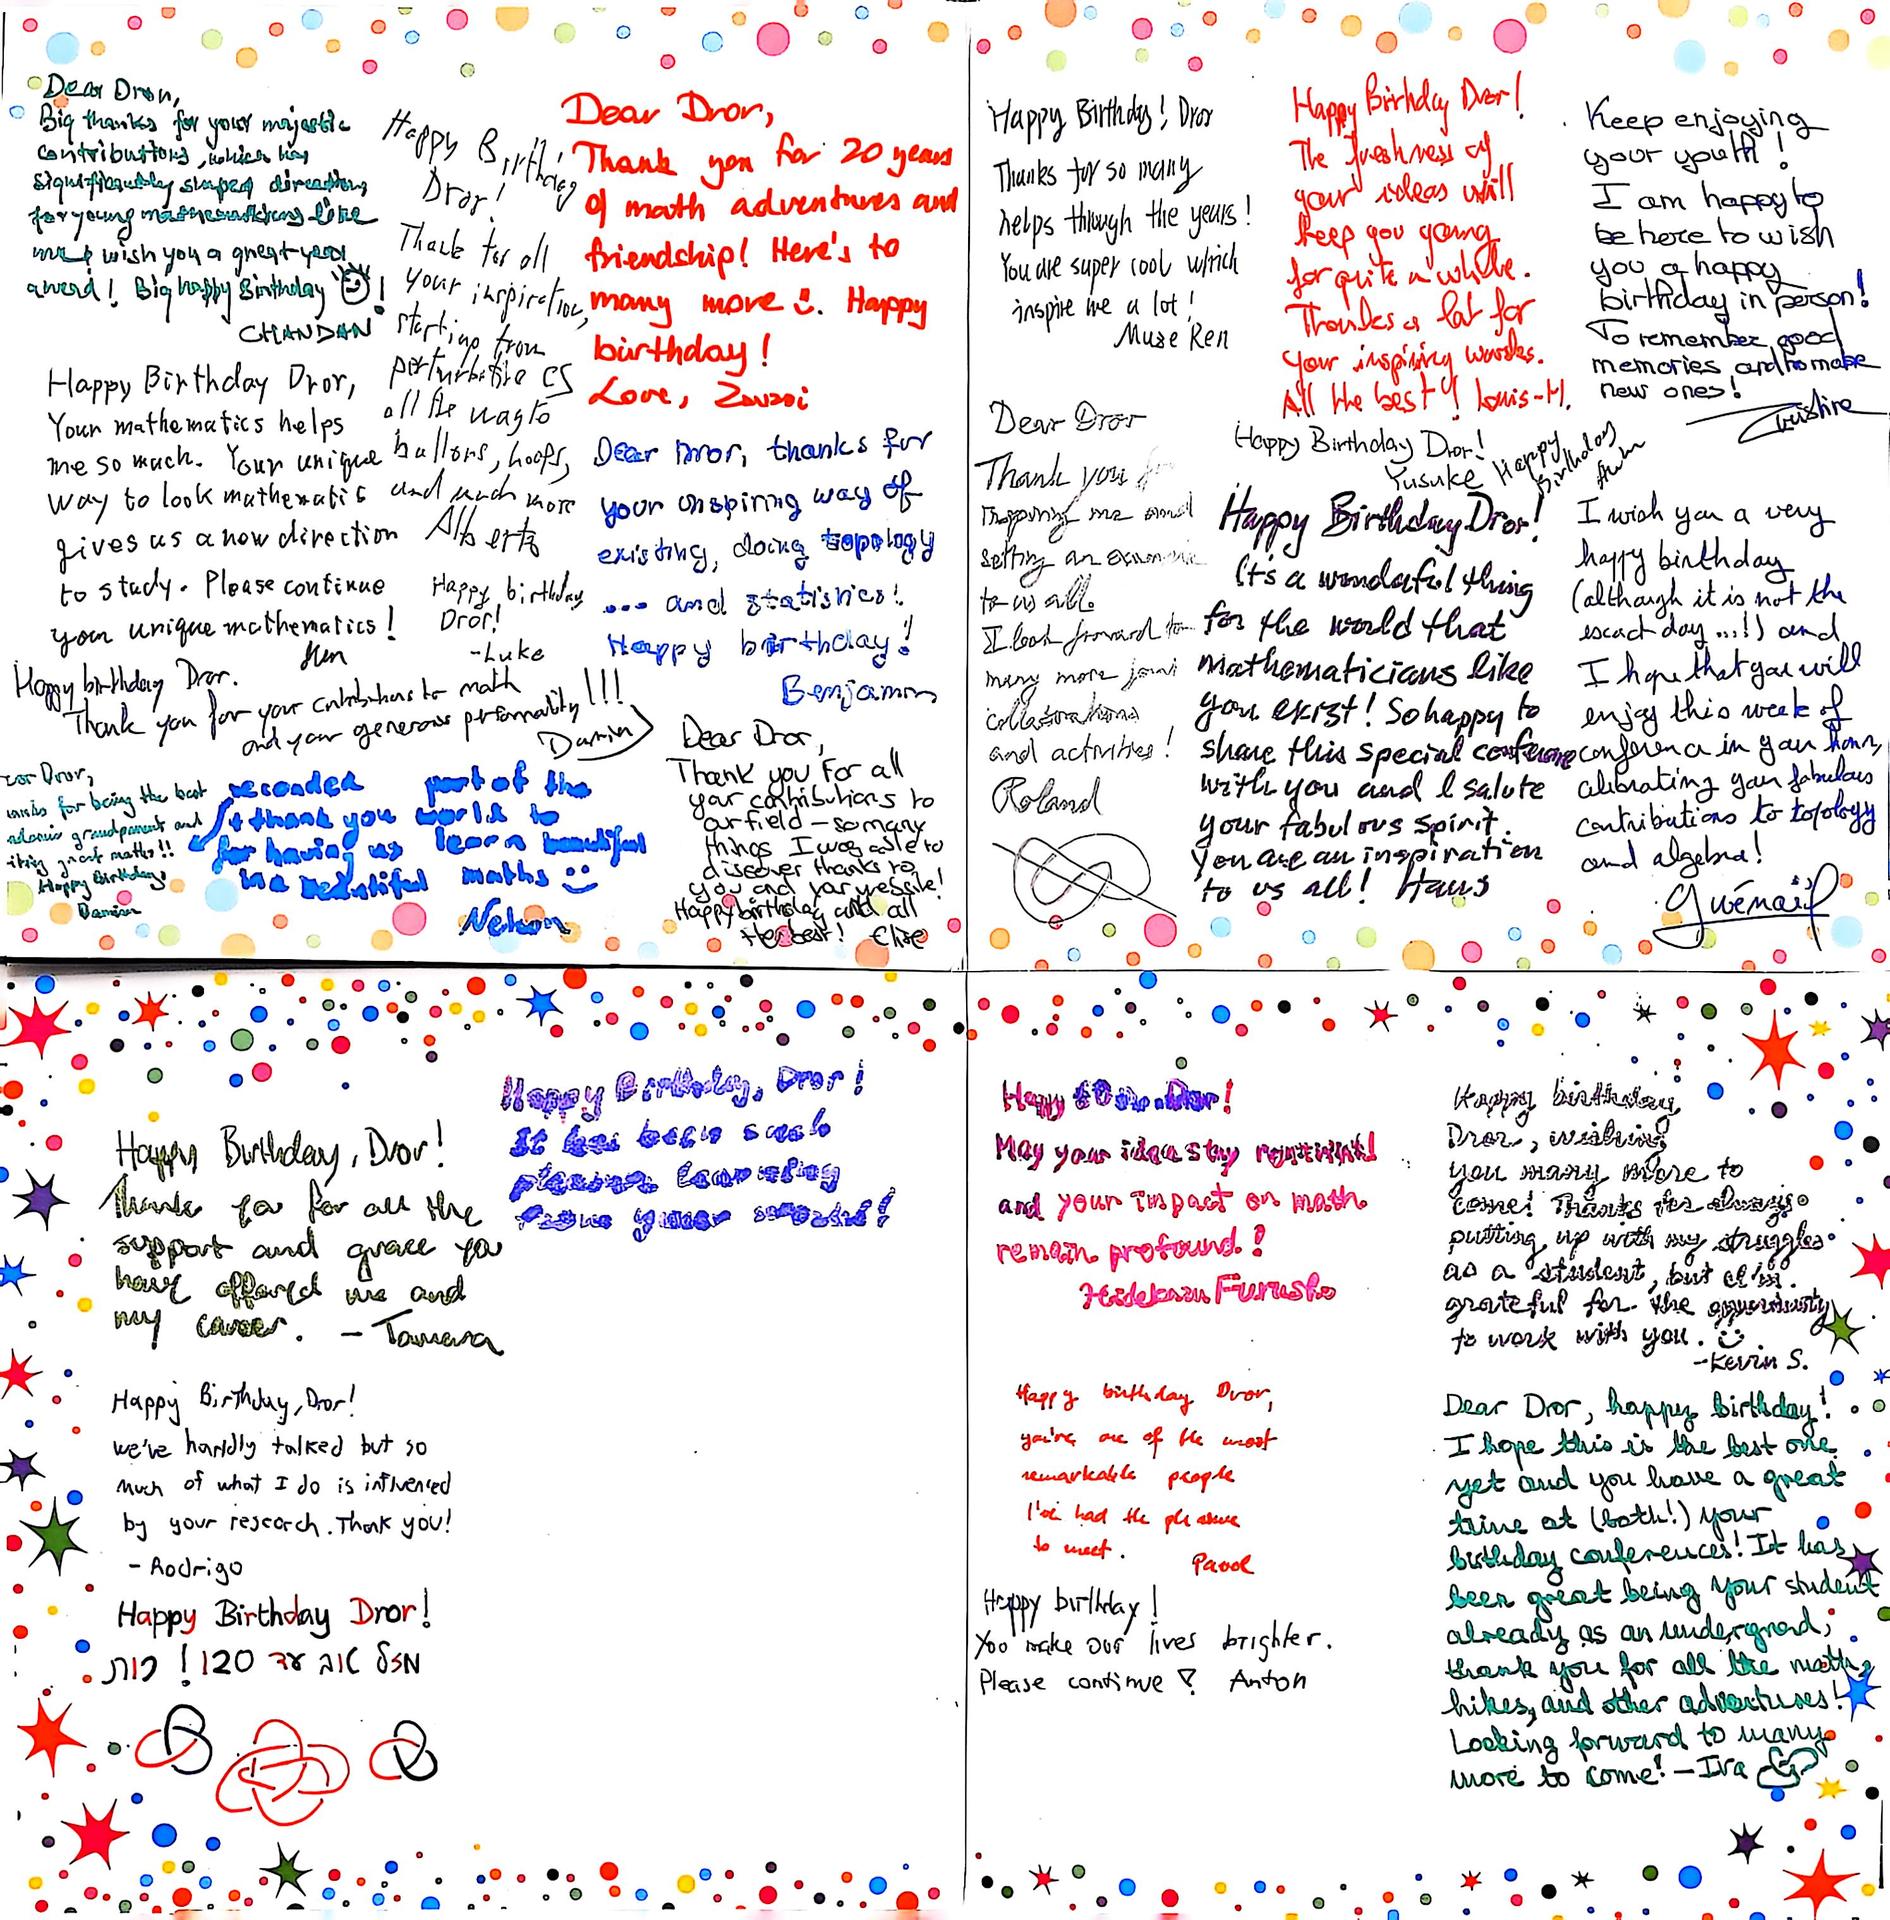 Dear Dror,
Big thanks for your majestic
contributions, which has
significantly shaped directions
for young mathematicians like
me. I wish you a great year
award! Big happy Birthday !
CHANDAN
Happy Birthday
Dror!
Thank for all
your inspiration,
starting from
perturbative CS
all the way to
ballons, hoops,
and much more
Alberto
Dear Dror,
Thank you for 20 years
of math adventures and
friendship! Here's to
many more :). Happy
birthday!
Love, Zsuzsi
Happy Birthday Dror,
Your mathematics helps
me so much. Your unique
way to look mathematics
gives us a new direction
to study. Please continue
your unique mathematics!
Happy birthday
Dror!
-Luke
Dear Dror, thanks for
your inspiring way of
existing, doing topology
... and statistics!
Happy birthday!
Benjamin
Happy birthday Dror.
Thank you for your contributions to math
and your generous personality !!!
Damien
Dror,
for being the best
grandparent and
great maths!!
Happy Birthday!
Damien
seconded
+ thank you
for having us
in a beautiful
part of the
world to
learn beautiful
maths :)
Nelson
Dear Dror,
Thank you for all
your contributions to
our field – so many
things I was able to
discover thanks to
you and your website!
Happy birthday and all
the best! Elise
Happy Birthday! Dror
Thanks for so many
helps through the years!
You are super cool which
inspire me a lot!
Muse Ren
Happy Birthday Dror!
The freshness of
your ideas will
keep you young
for quite a while.
Thanks a lot for
your inspiring works.
All the best! Louis-H.
Keep enjoying
your youth!
I am happy to
be here to wish
you a happy
birthday in person!
To remember good
memories and to make
new ones!
Christine
Dear Dror
Thank you for
inspiring me and
setting an example
to us all.
I look forward to
many more joint
collaborations
and activities!
Roland
Happy Birthday Dror!
Yusuke
Happy
Birthday
Happy Birthday Dror!
It's a wonderful thing
for the world that
mathematicians like
you exist! So happy to
share this special conference
with you and I salute
your fabulous spirit.
You are an inspiration
to us all! Hans
I wish you a very
happy birthday
(although it is not the
exact day ...!) and
I hope that you will
enjoy this week of
conference in your honor,
celebrating your fabulous
contributions to topology
and algebra!
Gwénaël
Happy Birthday, Dror!
Thank you for all the
support and grace you
have offered me and
my career. – Tamara
Happy Birthday, Dror!
It has been such
pleasure learning
from your
Happy Birthday, Dror!
we've hardly talked but so
much of what I do is influenced
by your research. Thank you!
- Rodrigo
Happy Birthday Dror!
מזל טוב עד 120! רות
Happy 60 Dror!
May your ideas stay
and your impact on math
remain profound!
Hidekazu Furusho
Happy birthday
Dror, wishing
you many more to
come! Thanks for always
putting up with my struggles
as a student, but I'm
grateful for the opportunity
to work with you. :)
-Kevin S.
Happy birthday Dror,
you're one of the most
remarkable people
I've had the pleasure
to meet.
Pavol
Happy birthday!
You make our lives brighter.
Please continue! Anton
Dear Dror, happy birthday!
I hope this is the best one
yet and you have a great
time at (both!) your
birthday conferences! It has
been great being your student
already as an undergrad,
thank you for all the math,
hikes, and other adventures!
Looking forward to many
more to come! – Iva